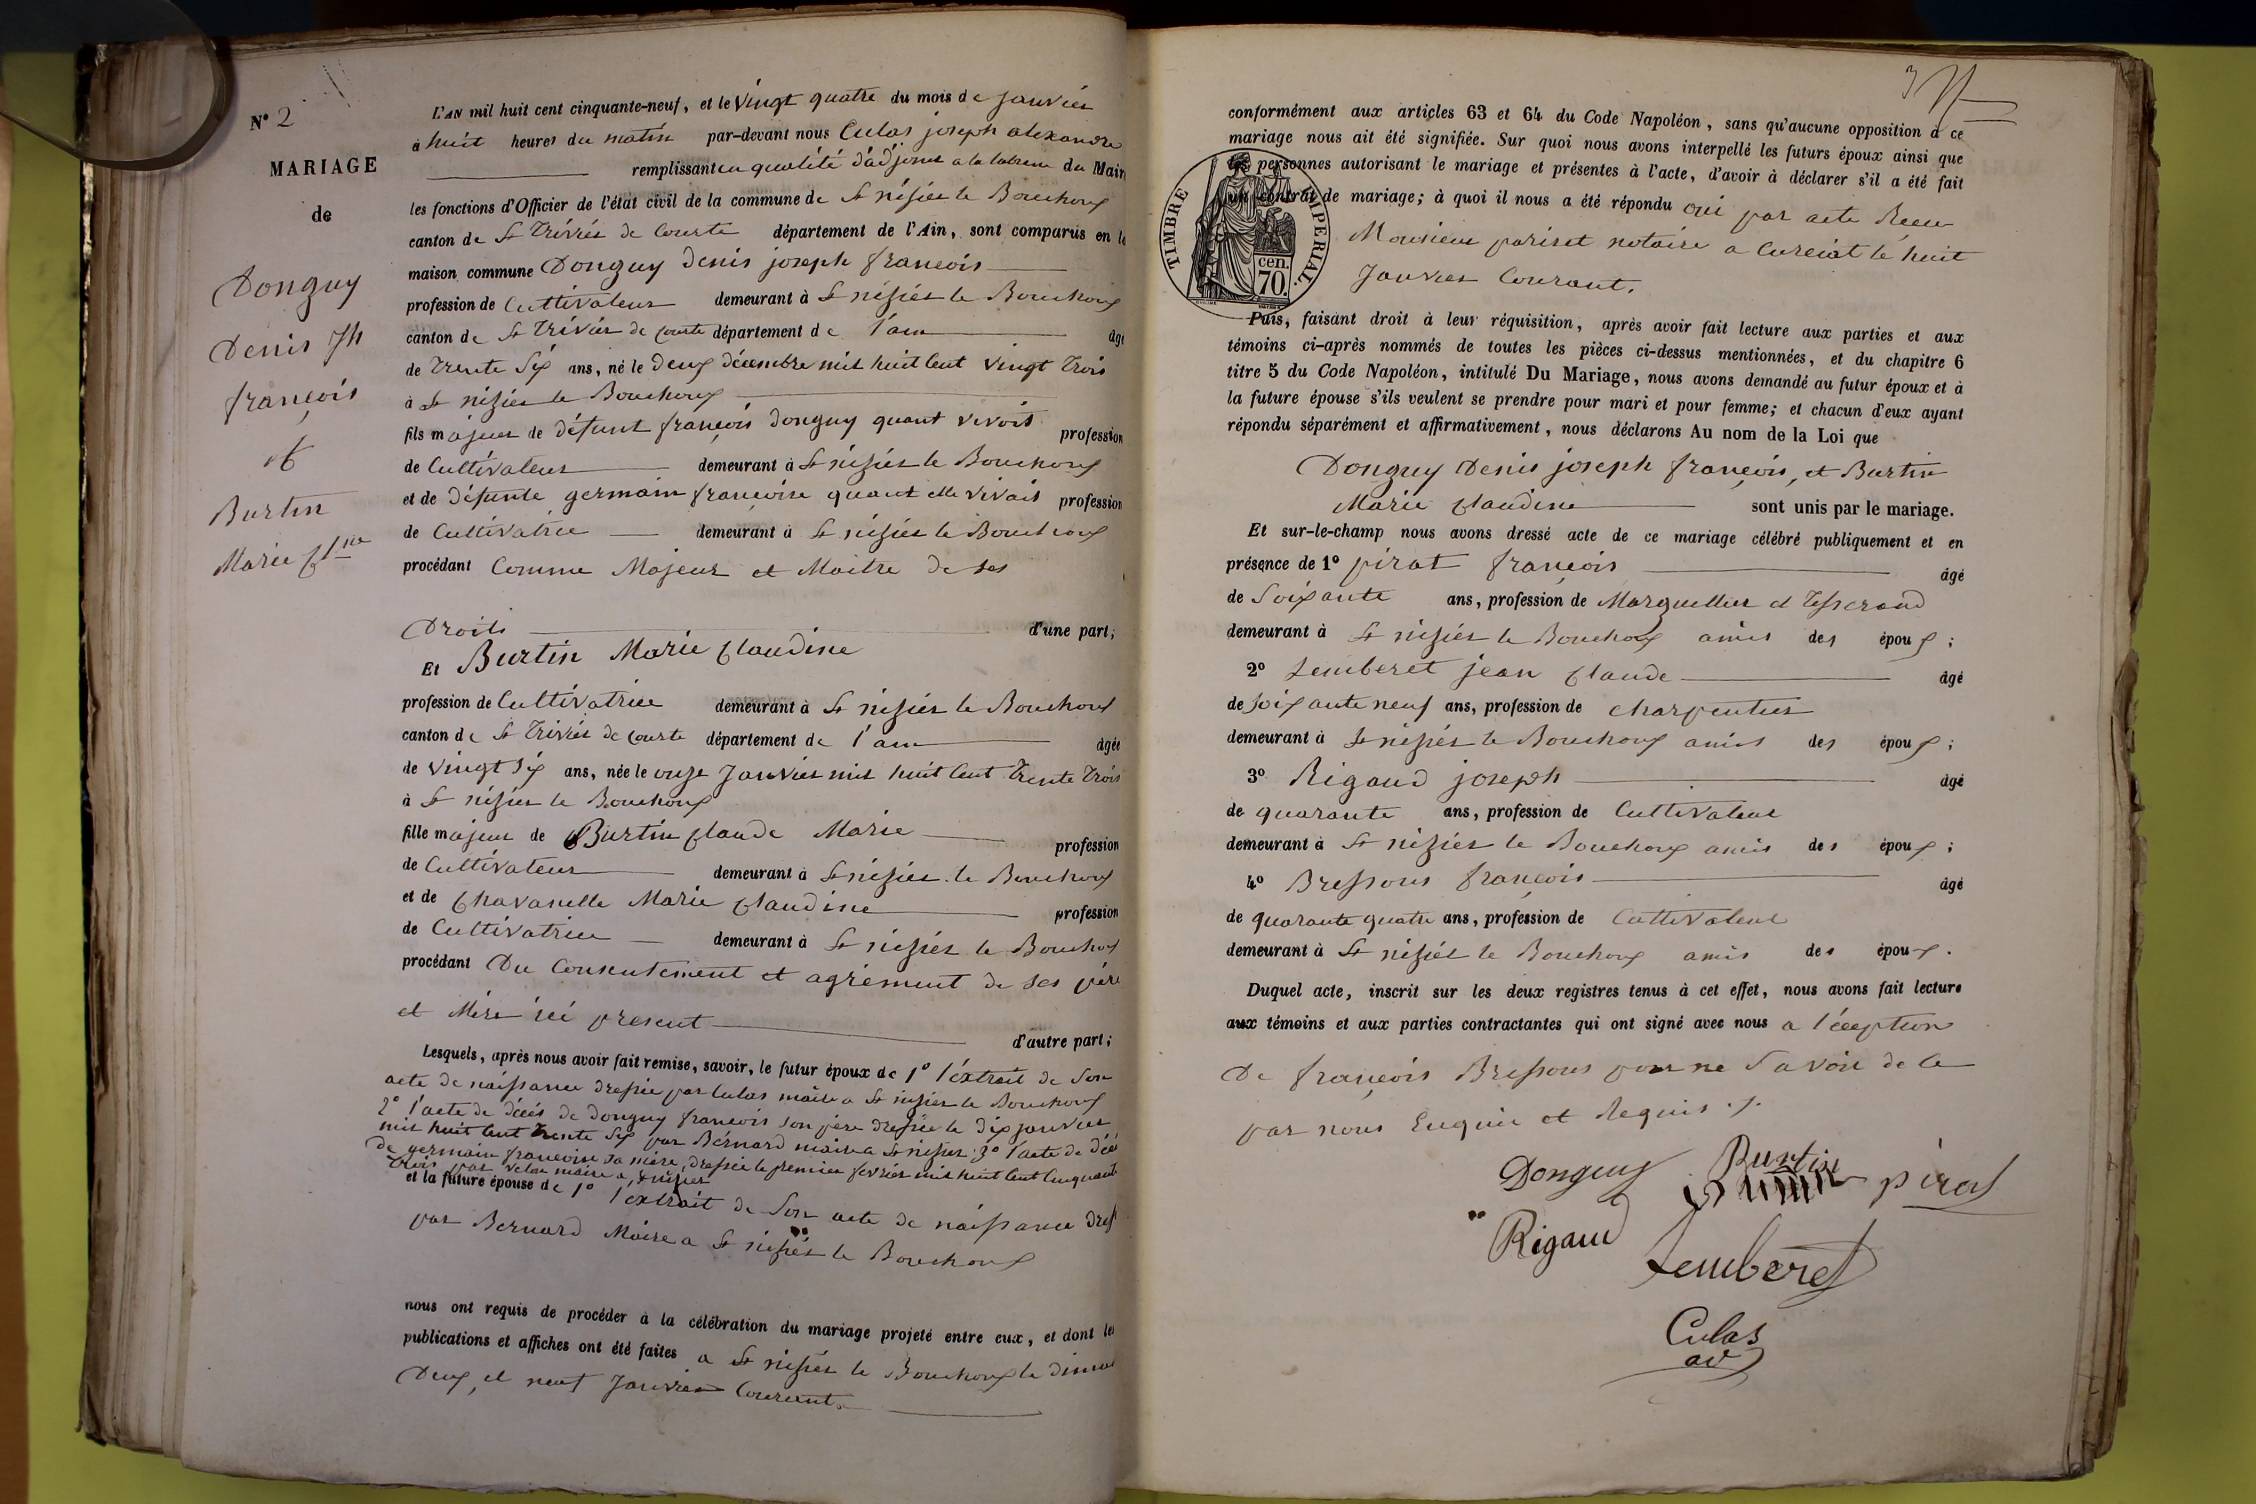 N° 2
MARIAGE
de
Donguy
Denis Jh
françois
et
Burtin
Marie Cl.ne
L'AN mil huit cent cinquante-neuf, et le Vingt quatre du mois de janvier
à huit heures du matin par-devant nous Culas joseph alexandre
remplissant en qualité d'adjoint a la du Maire
les fonctions d'Officier de l'état civil de la commune de St nisiér le Bouchoux
canton de St Triviér de Courte département de l'Ain, sont comparus en la
maison commune Donguy denis joseph françois
profession de Cultivateur demeurant à St nisiér le Bouchoux
canton de St Triviér de Courte département de l'ain âgé
de Trente Six ans, né le Deux décembre mil huit Cent Vingt Trois
à St nisiér le Bouchoux
fils majeur de défunt françois Donguy quant vivoit profession
de Cultivateur demeurant à St nisiér le Bouchoux
et de défunte germain françoise quant elle vivait profession
de Cultivatrice demeurant à St nisiér le Bouchoux
procédant Comme Majeur et Maitre de ses
Droits d'une part;
Et Burtin Marie Claudine
profession de Cultivatrice demeurant à St nisiér le Bouchoux
canton de St Triviér de Courte département de l'ain âgée
de Vingt Six ans, née le onze Janvier mil huit Cent Trente Trois
à St nisiér le Bouchoux
fille majeur de Burtin Claude Marie profession
de Cultivateur demeurant à St nisiér le Bouchoux
et de Chavanelle Marie Claudine profession
de Cultivatrice demeurant à St nisiér le Bouchoux
procédant Du Consentement et agrément de ses pére
et Mére ici present d'autre part;
Lesquels, après nous avoir fait remise, savoir, le futur époux de 1° l'éxtrait de Son
acte de naissance dressée par Culas maire a St nisiér le Bouchoux
2° l'acte de décés de Donguy francois son pére dressée le dix janvier
mil huit Cent Trente Six par Bérnard maire a St nisiér 3° l'acte de décé
de germain francoise sa mére, dressée le premier fevriér mil huit Cent Cinquante
Trois par Velon maire a St nisiér
et la future épouse de 1° l'extrait de Son acte de naissance dress
par Bernard Maire a St nisiér le Bouchoux
nous ont requis de procéder à la célébration du mariage projeté entre eux, et dont les
publications et affiches ont été faites a St nisiér le Bouchoux le diman
Deux, et neuf Janvier Courant.
3
conformément aux articles 63 et 64 du Code Napoléon, sans qu'aucune opposition à ce
mariage nous ait été signifiée. Sur quoi nous avons interpellé les futurs époux ainsi que
les personnes autorisant le mariage et présentes à l'acte, d'avoir à déclarer s'il a été fait
un contrat de mariage; à quoi il nous a été répondu oui par acte Recu
Monsieur pariset notaire a Curciat le huit
Janvier Courant.
TIMBRE IMPERIAL.
70. cen.
Puis, faisant droit à leur réquisition, après avoir fait lecture aux parties et aux
témoins ci-après nommés de toutes les pièces ci-dessus mentionnées, et du chapitre 6
titre 5 du Code Napoléon, intitulé Du Mariage, nous avons demandé au futur époux et à
la future épouse s'ils veulent se prendre pour mari et pour femme; et chacun d'eux ayant
répondu séparément et affirmativement, nous déclarons Au nom de la Loi que
Donguy Denis joseph françois, et Burtin
Marie Claudine sont unis par le mariage.
Et sur-le-champ nous avons dressé acte de ce mariage célébré publiquement et en
présence de 1° pirat françois âgé
de Soixante ans, profession de Marguillier et Tisserand
demeurant à St nisiér le Bouchoux amis des époux;
2° Lemberet jean Claude âgé
de soixante neuf ans, profession de charpentier
demeurant à St nisiér le Bouchoux amis des époux;
3° Rigaud joseph âgé
de quarante ans, profession de Cultivateur
demeurant à St nisiér le Bouchoux amis des époux;
4° Bressous françois âgé
de quarante quatre ans, profession de Cultivateur
demeurant à St nisiér le Bouchoux amis des époux.
Duquel acte, inscrit sur les deux registres tenus à cet effet, nous avons fait lecture
aux témoins et aux parties contractantes qui ont signé avec nous a l'éception
De françois Bressous pour ne Savoir de ce
par nous Enquis et Requis ./.
Donguy Burtin pirat
Rigaud
Lemberet
Culas
ad